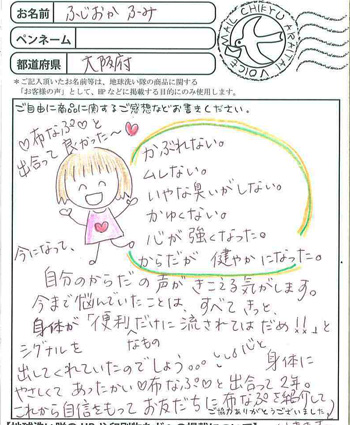 お名前 ふじおか ふみ
ペンネーム
都道府県 大阪府
MAIL CHIKYU ARAITAI VOICE
＊ご記入頂いたお名前等は、地球洗い隊の商品に関する
「お客様の声」として、HPなどに掲載する目的にのみ使用します。
ご自由に商品に関するご感想などお書きください。
♡布なぷ♡と
出合って良かった〜♡
かぶれない。
ムレない。
いやな臭いがしない。
かゆくない。
心が強くなった。
からだが健やかになった。
今になって、
自分のからだの声がきこえる気がします。
今まで悩んでいたことは、すべてきっと、
身体が「便利なものへだけに流されてはだめ!!」と
シグナルを
出してくれていたのでしょう…
身体に
やさしくてあったかい♡布なぷ♡と出合って2年。
これから自信をもってお友だちに布なぷを紹介して
ご協力ありがとうございました。